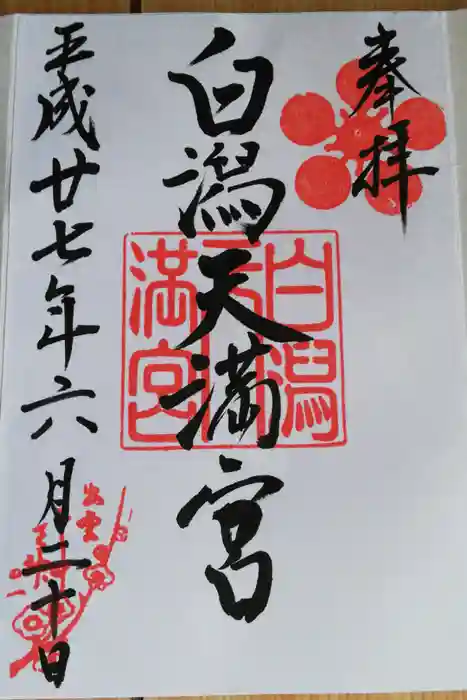 奉拝
白潟天満宮
白潟
天
満宮
平成廿七年六月二十日
出雲